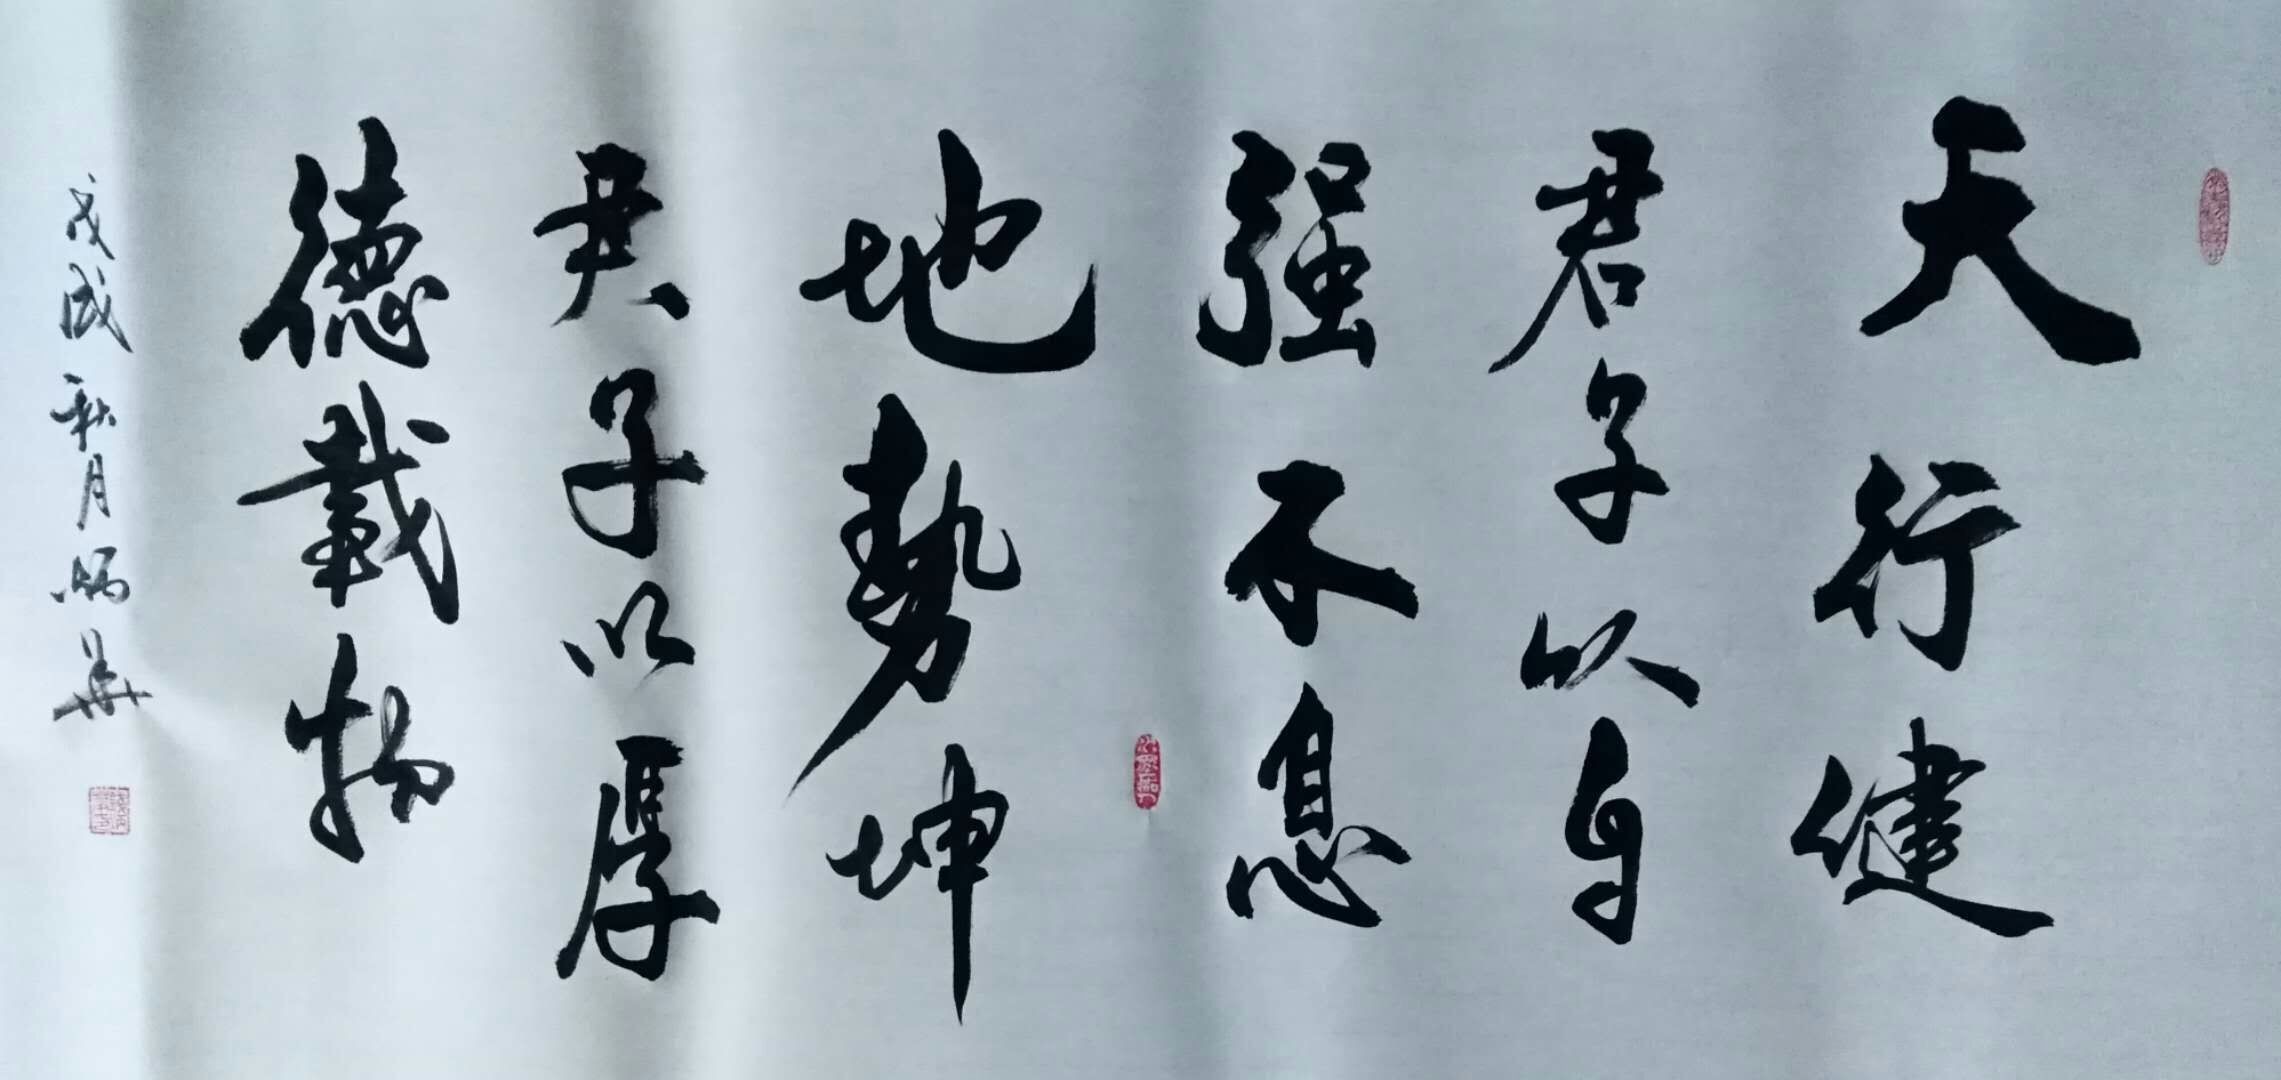 天行健
君子以自
强不息
地勢坤
君子以厚
德載物
戊戌秋月炳華